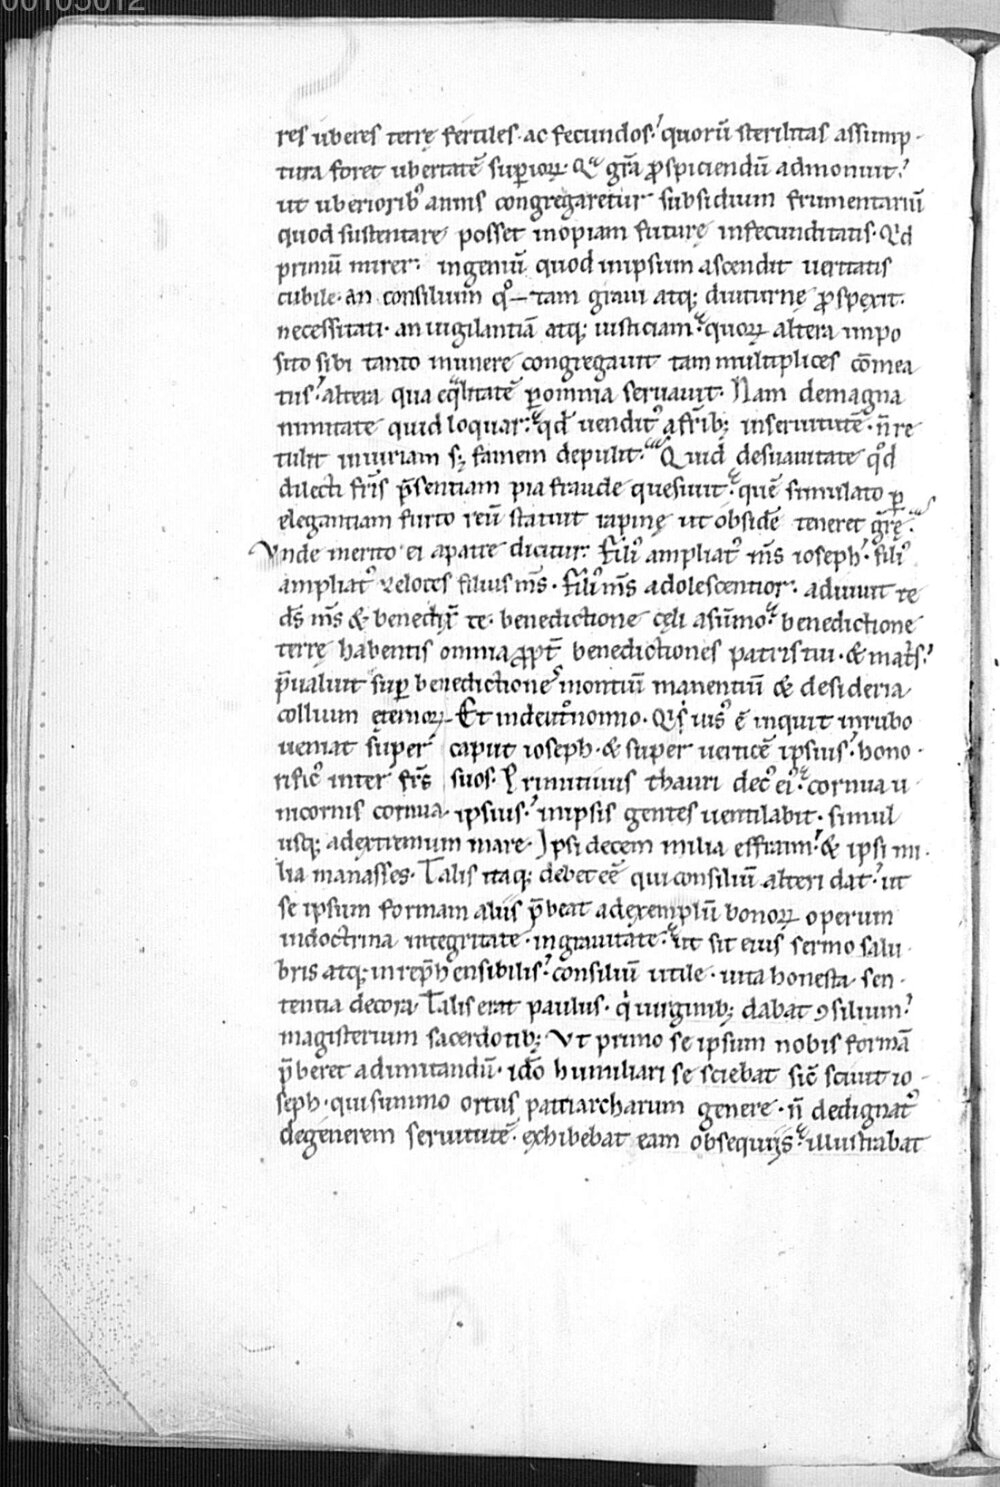 00105012
res uberes terrę fertiles· ac fecundos? quorū sterilitas assump-
tura foret ubertatē supiorꝝ· Qua grā ꝓspiciendū admonuit?
ut uberiorib; annis congregaretur subsidium frumentariū
quod sustentare posset inopiam futurę infecunditatis· Qd
primū mirer· ingeniū quod in ipsum ascendit ueritatis
cubile· an consilium qͦ tam graui atq; diuturnę ꝓspexit·
necessitati· an uigilantiā atq; iusticiam? quorꝝ altera impo
sito sibi tanto munere congregauit tam multiplices cōmea
tus? altera qua eqͣlitatē ꝑ omnia seruauit· Nam de magna
nimitate quid loquar? qd̄ uendit᷒ a frīb; in seruitutē· n̄ re
tulit iniuriam sꝫ famem depulit? Quid de suauitate qͦd
dilecti frīs p̄sentiam pia fraude quesiuit? quē simulato ꝑ
elegantiam furto reū statuit rapinę ut obsidē teneret grę?
Vnde merito ei a patre dicitur· fili᷒ ampliat᷒ m̄s ioseph? fili᷒
ampliat᷒ zelotes filius m̄s· fili᷒ m̄s adolescentior· adiuuit te
ds̄ m̄s & benedix̄ te· benedictione cęli a sūmo? benedictione
terrę habentis omnia ꝓpt̄ benedictiones patris tui· & mat̄s?
p̄ualuit sup̄ benedictiones montiū manentiū & desideria
collium ęternorꝝ· Et in deut̄nomio· Qi uis᷒ ē inquit in rubo
ueniat super caput ioseph· & super uerticē ipsius? hono-
rific᷒ inter frs̄ suos· Primitiuus thauri dec᷒ ei᷒? cornua u
nicornis cornua ipsius? in ipsis gentes uentilabit· simul
usq; ad extremum mare· Ipsi decem milia effraim? & ipsi mi-
lia manasses· Talis itaq; debet eē qui consiliū alteri dat? ut
se ipsum formam aliis p̄beat ad exemplū bonorꝝ operum
in doctrina in integritate· in grauitate? ut sit eius sermo salu-
bris atq; inrep̄hensibilis? consiliū utile· uita honesta· sen-
tentia decora· Talis erat paulus· qͥ uirginib; dabat ꝯsilium?
magisterium sacerdotib; Vt primo se ipsum nobis formā
p̄beret ad imitandū· ido humiliari se sciebat sic̄ sciuit io-
seph· qui summo ortus patriarcharum genere· n̄ dedignat᷒
degenerem seruitutē· exhibebat eam obsequiis? illustrabat